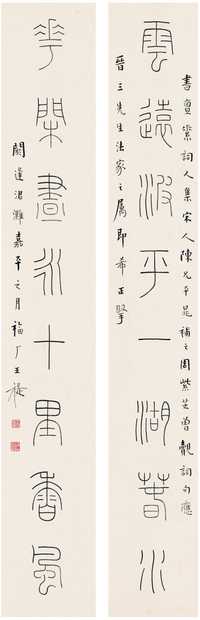 雲遠波平一湖春水
書亶梁詞人集宋人陳允平晁補之周紫芝曾覿詞句應
晉三先生法家之属即希正擘
花閑晝永十里香風
閼逢涒灘嘉平之月福厂王禔